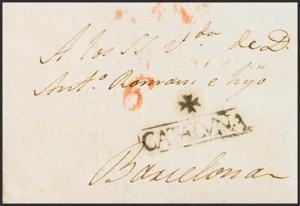 A los SS. V.da de D.
Ant.o Romani e hijo
6
CATALUÑA
Barcelona